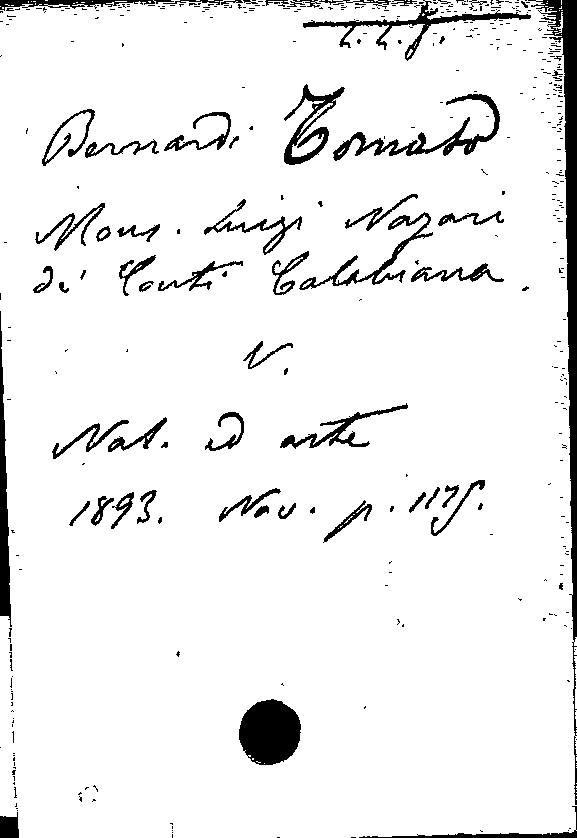 Bernardi Tomaso
Mons. Luigi Nazari
di Conti Calabiana.
V.
Nat. ed arte
1893. Nov. p. 1175.